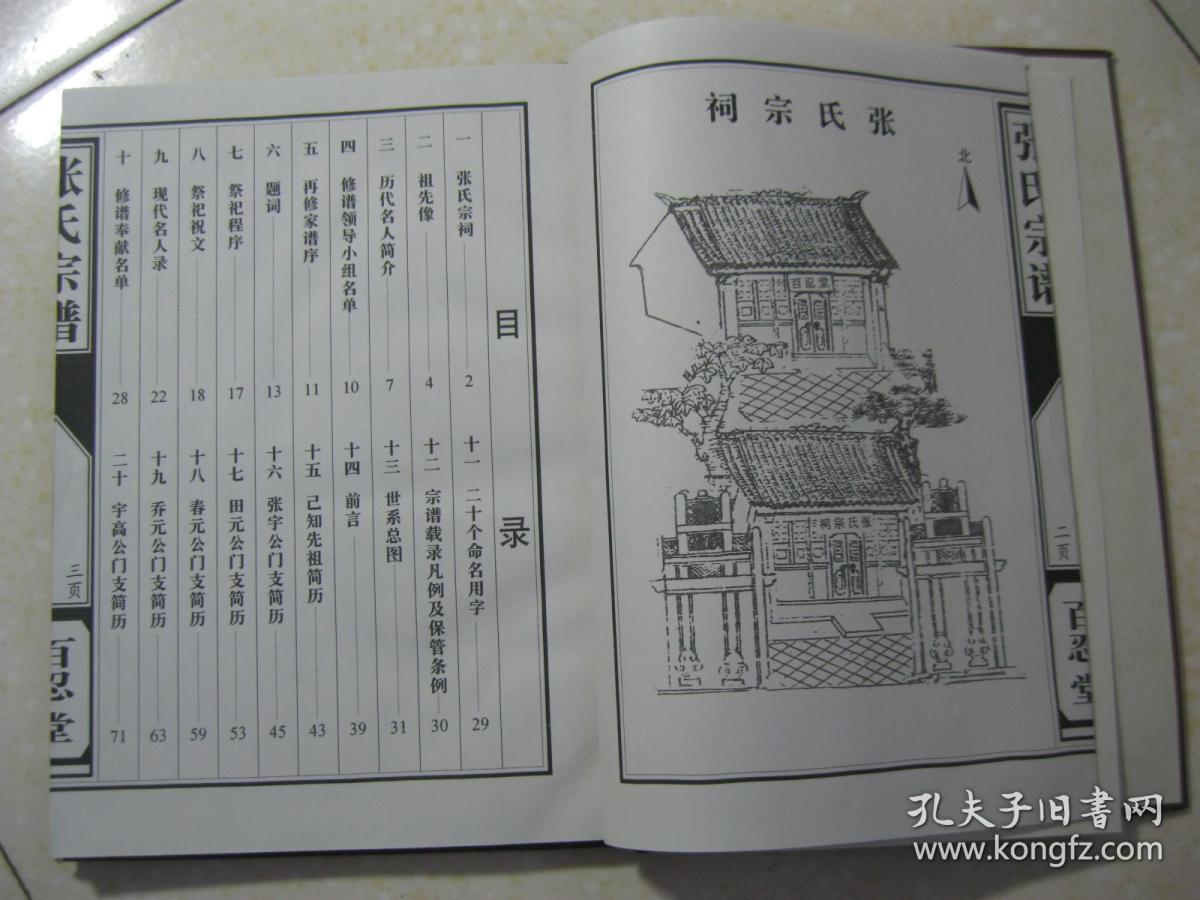 张氏宗谱
二页
百忍堂
张氏宗祠
北
百忍堂
张氏宗祠
目录
一 张氏宗祠 2
二 祖先像 4
三 历代名人简介 7
四 修谱领导小组名单 10
五 再修家谱序 11
六 题词 13
七 祭祀程序 17
八 祭祀祝文 18
九 现代名人录 22
十 修谱奉献名单 28
十一 二十个命名用字 29
十二 宗谱载录凡例及保管条例 30
十三 世系总图 31
十四 前言 39
十五 己知先祖简历 43
十六 张宇公门支简历 45
十七 田元公门支简历 53
十八 春元公门支简历 59
十九 乔元公门支简历 63
二十 宇高公门支简历 71
张氏宗谱
三页
百忍堂
孔夫子旧书网
www.kongfz.com